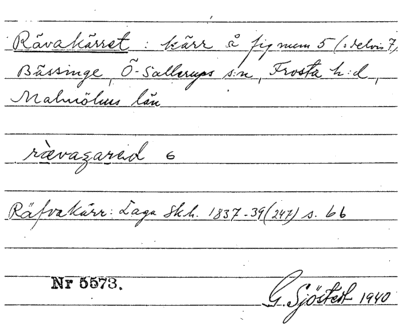 Rävakärret : kärr å fig num 5 (: delvis 7)
Bässinge, Ö-Sallerups s:n, Frosta h:d,
Malmöhus län
rävagared 6
Räfvakärr: Laga Skh. 1837-39 (247) s. 66
Nr 5573.
G. Sjöstedt 1940